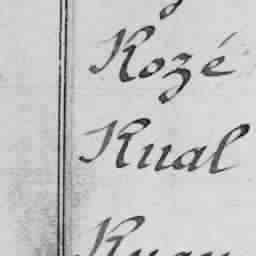 Kozé
Kual